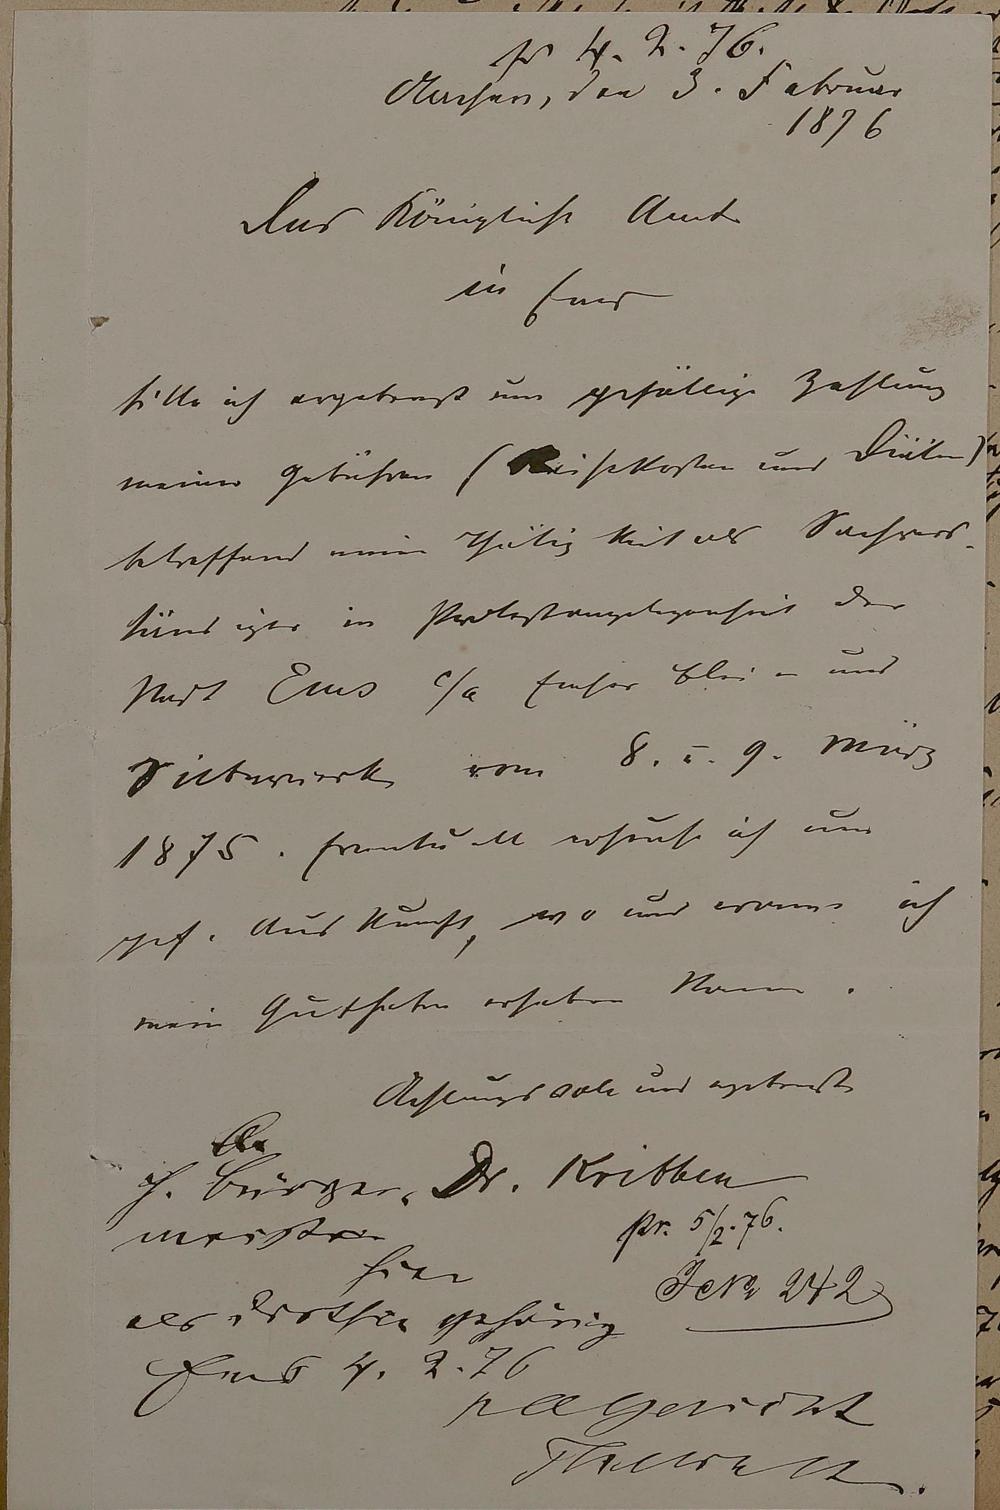 pr 4. 2. 76.
Aachen, den 3. Februar
1876
Das Königliche Amt
in Ems
bitte ich ergebenst um gefällige Zahlung
meiner Gebühren (Reisekosten und Diäten)
betreffend meine Thätigkeit als Sachver-
ständiger in Protestangelegenheit der
Stadt Ems c/a Emser Blei- und
Silberwerk vom 8. u. 9. März
1875. Eventuell ersuche ich um
gef. Auskunft, wo und wann ich
mein Guthaben erheben kann.
Achtungsvoll und ergebenst
Dr. Kribben
H. Bürger-
meister
hier
als dorthin gehörig
Ems 4. 2. 76
pr. 5/2. 76.
JNo 242